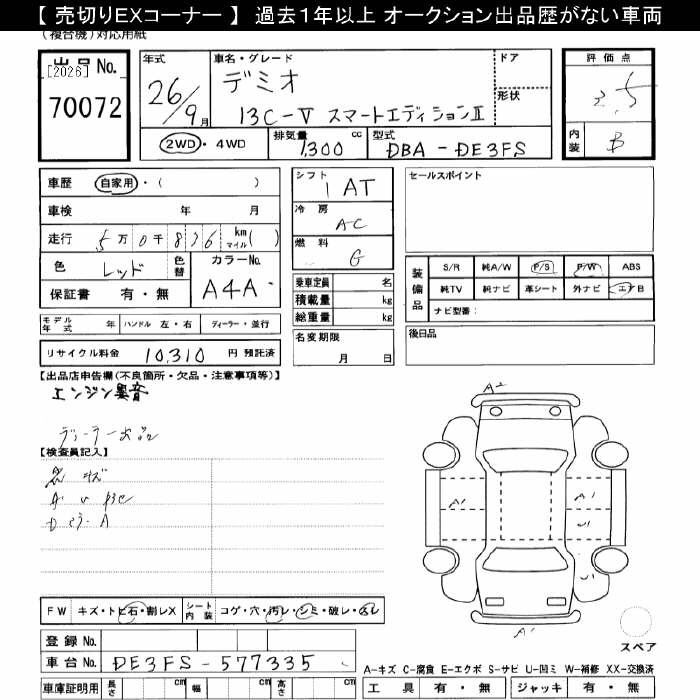 【 売切りEXコーナー 】 過去1年以上 オークション出品歴がない車両
(複合機)対応用紙
出品 No.
[2026]
70072
年式
26/9月
車名・グレード
デミオ
13C-V スマートエディションⅡ
ドア
形状
評価点
2.5
内装
B
2WD・4WD
排気量 1,300 cc
型式 DBA-DE3FS
車歴 自家用・( )
車検 年 月
走行 5万0千836 km マイル( )
色 レッド 色替
カラーNo. A4A
保証書 有・無
シフト 1AT
冷房 AC
燃料 G
乗車定員 名
積載量 kg
総重量 kg
名変期限 月 日
セールスポイント
装備品
S/R 純A/W P/S P/W ABS
純TV 純ナビ 革シート 外ナビ エアB
ナビ型番:
後日品
モデル年式 年 ハンドル 左・右 ディーラー・並行
リサイクル料金 10,310 円 預託済
【出品店申告欄(不良箇所・欠品・注意事項等)】
エンジン異音
ディーラー出品
【検査員記入】
キズ
A U
A
A2
A1
A1
U
U
A1
FW キズ・トビ石・割レX シート内装 コゲ・穴・汚レ・シミ・破レ・スレ
登録 No.
車台 No. DE3FS-577335
車庫証明用 長さ cm 幅 cm 高さ cm
スペア
A-キズ C-腐食 E-エクボ S-サビ U-凹ミ W-補修 XX-交換済
工具 有・無 ジャッキ 有・無